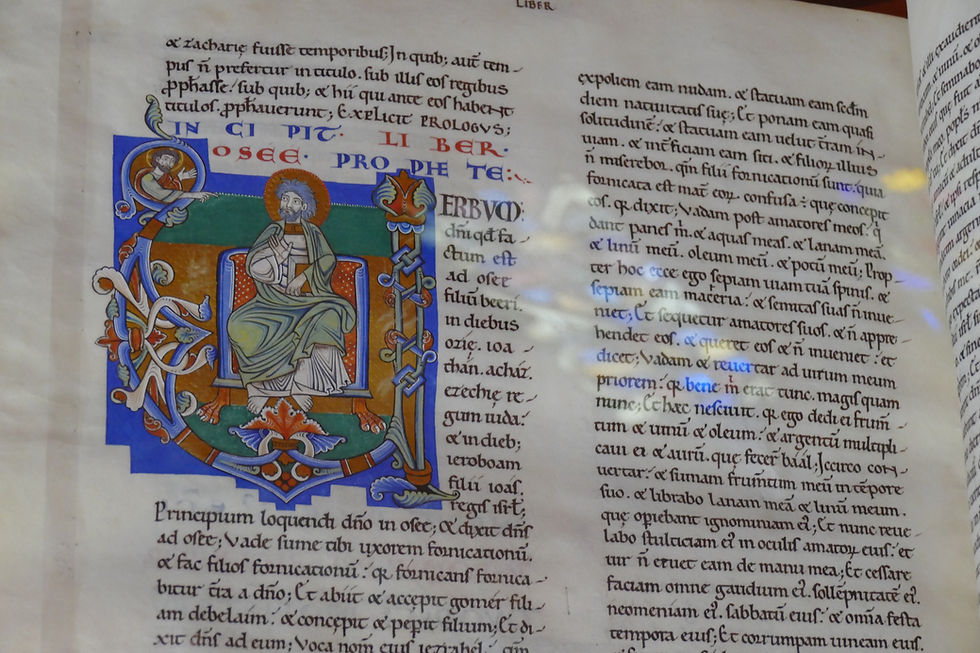 LIBER
& zachariȩ fuisse temporibus; In quib; aut̄ tem-
pus n̄ prefertur in titulo. sub illis eos regibus
ꝓphasse. sub quib; & hii qui ante eos habent
titulos ꝓphauerunt; EXPLICIT PROLOGVS;
INCIPIT LIBER
OSEE PROPHETE:
VERBVM
dn̄i qd̄ fa-
ctum est
ad osee
filiū beeri.
in diebus
oziȩ. ioa-
than. achaz.
ezechiȩ re-
gum iuda.
& in dieb;
ieroboam
filii ioas.
regis isrl̄;
Principium loquendi dn̄o in osee; & dixit dn̄s
ad osee; Vade sume tibi uxorem fornicationū.
& fac filios fornicationū. qꝛ fornicans fornica-
bitur tr̄a a dn̄o; Et abiit & accepit gomer fili-
am debelaim. & concepit & peperit filium; Et di-
xit dn̄s ad eum; Voca nom̄ eius iezrahel.
expoliem eam nudam. & statuam eam scd̄m
diem natiuitatis suȩ; Et ponam eam quasi
solitudinē. & statuam eam uelut tr̄am in-
uiam. & int̄ficiam eam siti. & filioꝝ illius
n̄ miserebor. qm̄ filii fornicationū sunt; quia
fornicata est mat̄ eoꝝ. confusa ÷ quȩ concepit
eos. qꝛ dixit; Vadam post amatores meos. q̇
dant panes m̄. & aquas meas. & lanam meā.
& linū meū. oleum meū. & potū meū; Prop-
ter hoc ecce ego sepiam uiam tuā spinis. &
sepiam eam maceria. & semitas suas n̄ inue-
niet; Et sequetur amatores suos. & n̄ appre-
hendet eos. & queret eos & n̄ inueniet. et
dicet; Vadam & reuertar ad uirum meum
priorem. qꝛ bene m̄ erat tunc. magis quam
nunc; Et hȩc nesciuit. qꝛ ego dedi ei frum̄-
tum & uinū & oleum. & argentū multipli-
caui ei & aurū. quȩ fecer̄ baal; Icirco con-
uertar. & sumam frum̄tum meū in tēpore
suo. & librabo lanam meā & linū meum.
quȩ opiebant ignominiam eꝰ; Et nunc reue-
labo stulticiam eꝰ in oculis amatoꝝ eius. et
uir n̄ eruet eam de manu mea; Et cessare
faciam omne gaudium eꝰ. sollēpnitatē eꝰ.
neomeniam eꝰ. sabbatū eius. & omnia festa
tempora eius; Et corrumpam uineam eius.